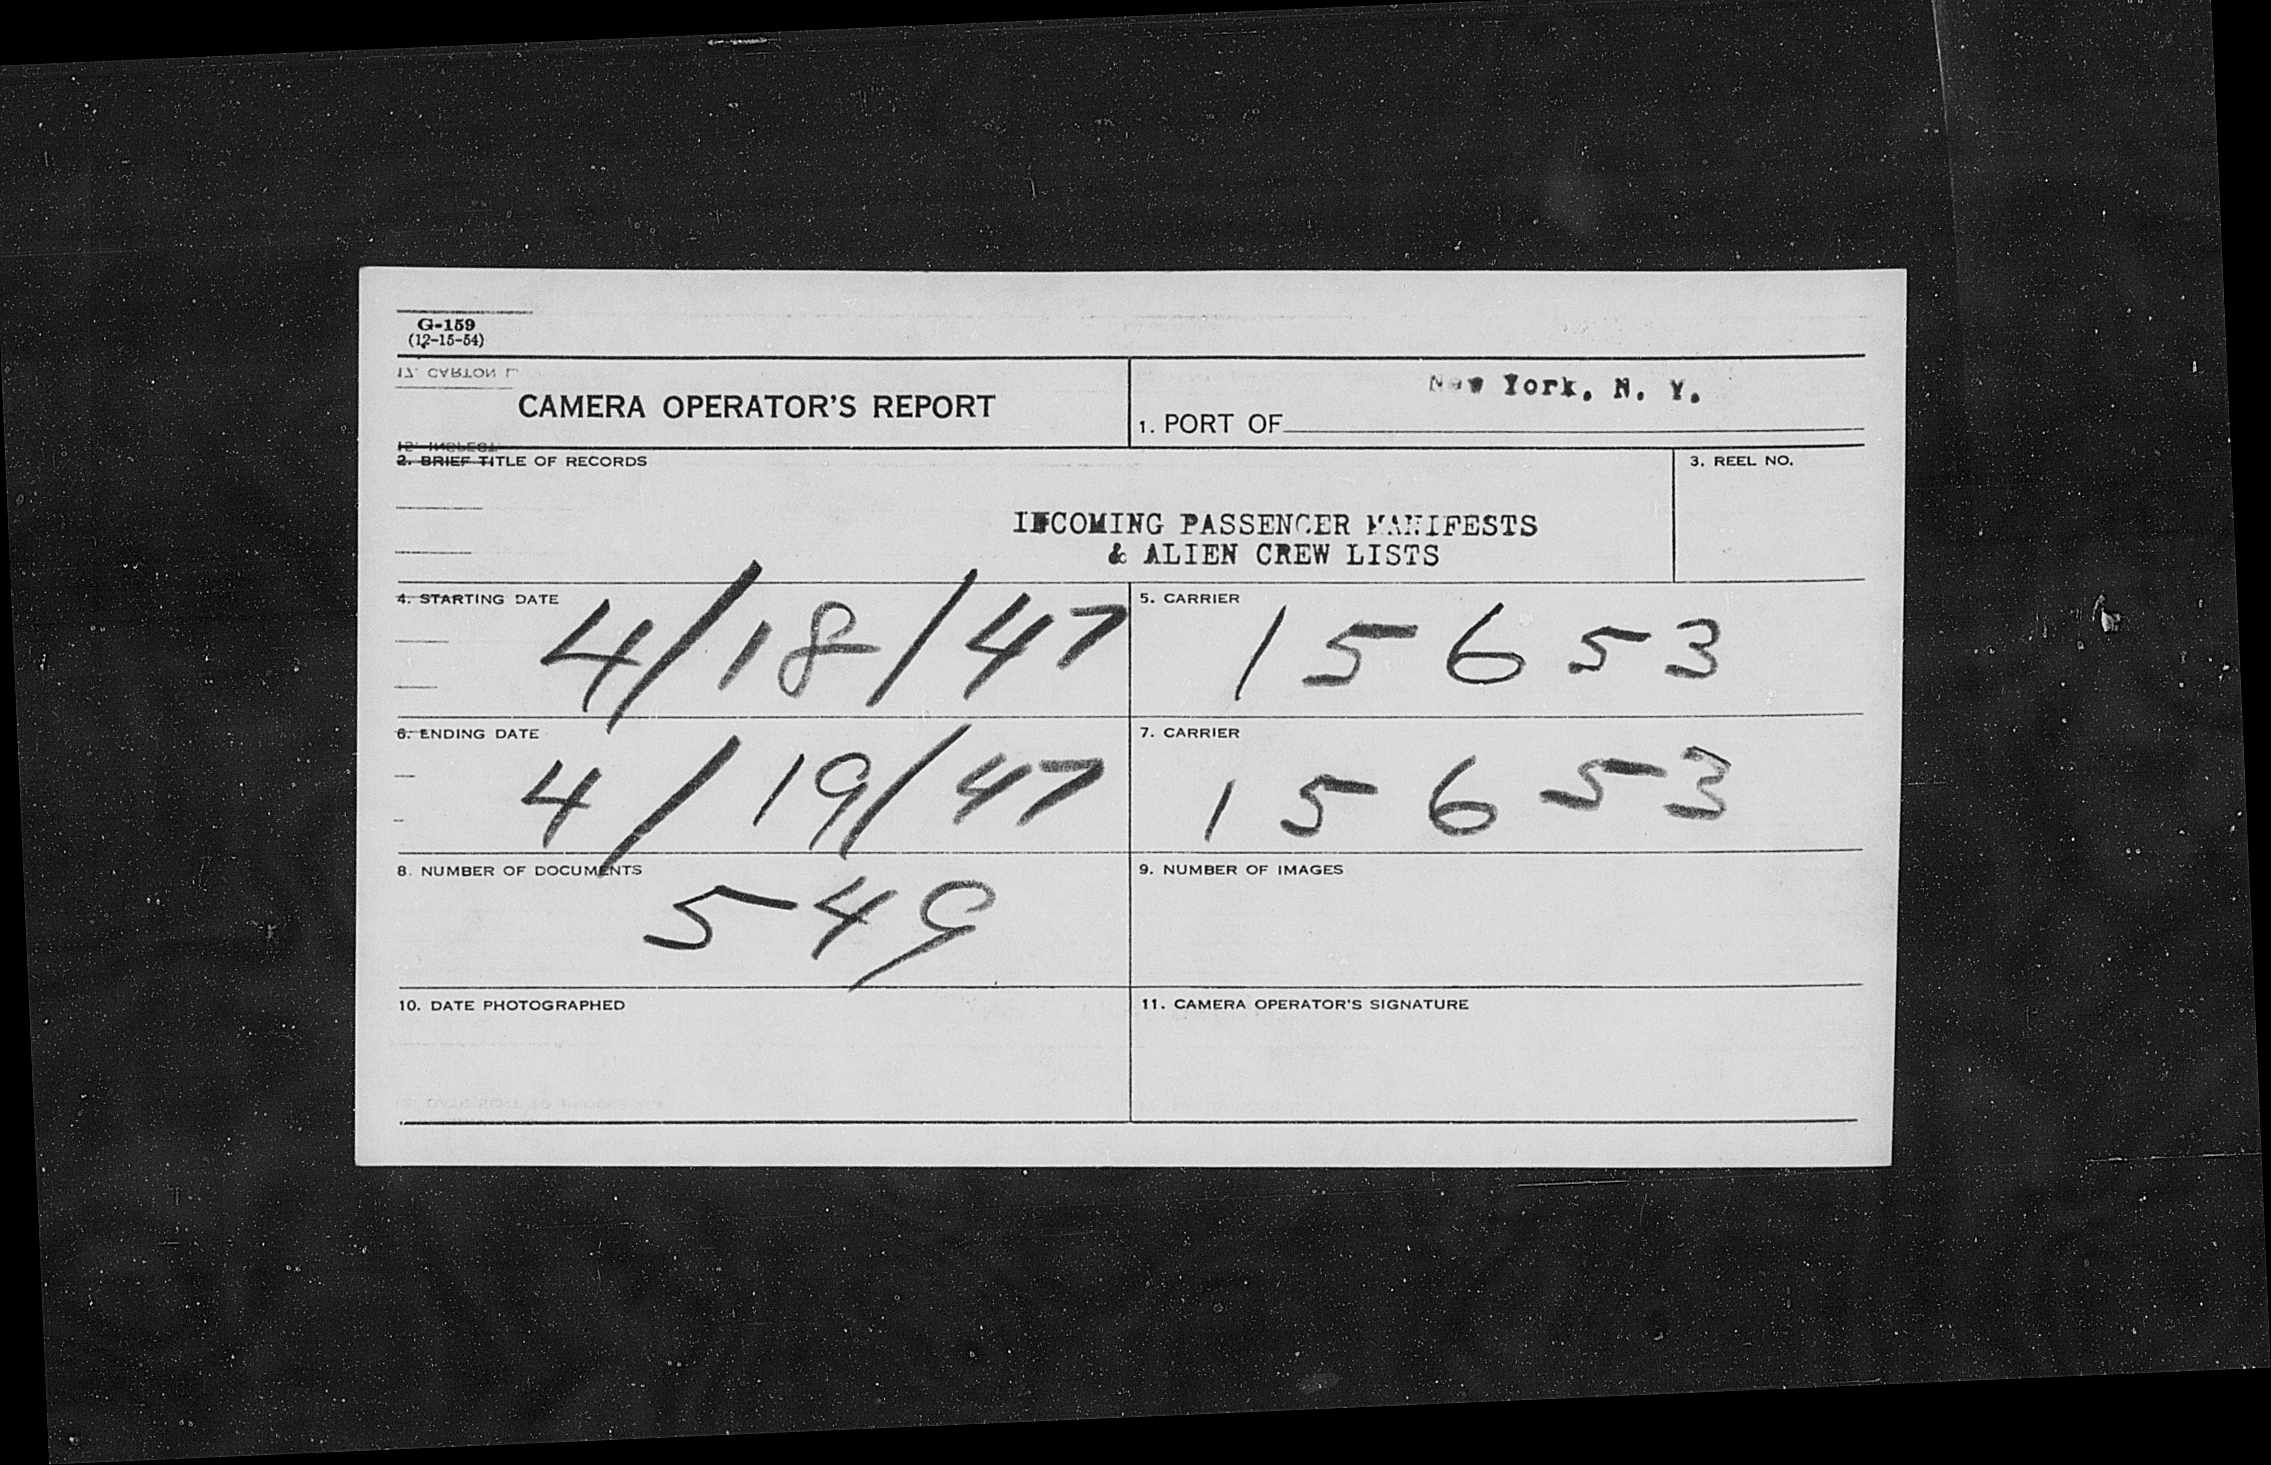 G-159
(12-15-54)
CAMERA OPERATOR'S REPORT
1. PORT OF New York, N. Y.
2. BRIEF TITLE OF RECORDS
INCOMING PASSENGER MANIFESTS
& ALIEN CREW LISTS
3. REEL NO.
4. STARTING DATE
4/18/47
5. CARRIER
15653
6. ENDING DATE
4/19/47
7. CARRIER
15653
8. NUMBER OF DOCUMENTS
549
9. NUMBER OF IMAGES
10. DATE PHOTOGRAPHED
11. CAMERA OPERATOR'S SIGNATURE